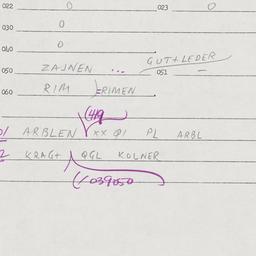 022 0 023 0
030 0
040 0
050 ZAJNEN ... 051 GUT+LEDER –
060 RIM ERIMEN
(419
01 ARBLEN XX 01 PL ARBL
2 KRAG+ QGL KOLNER
(039050